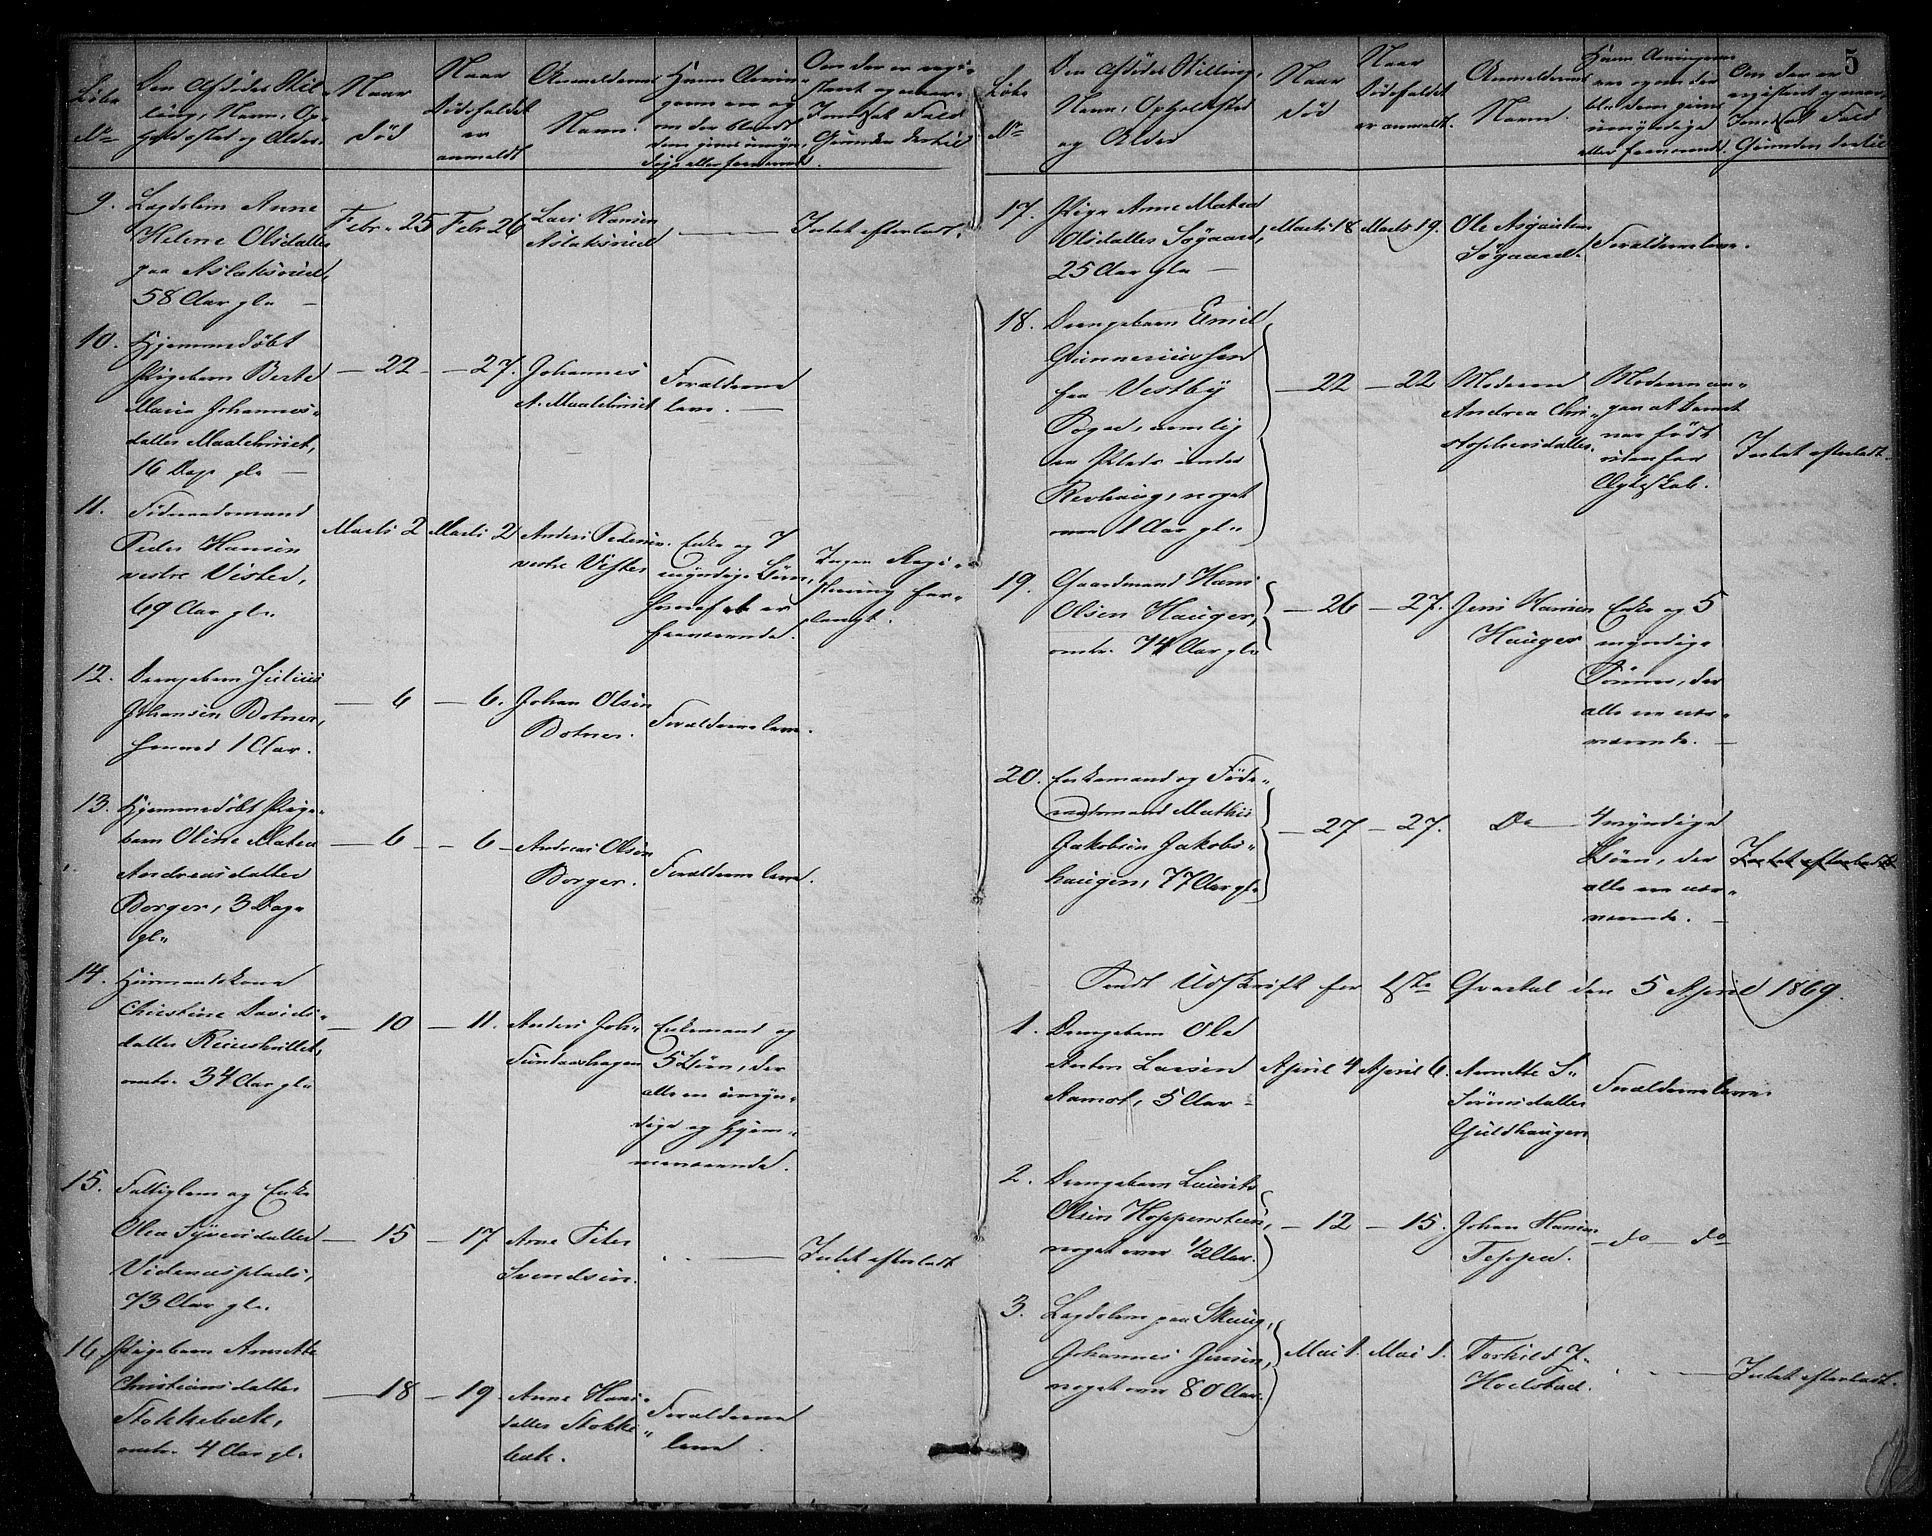 Løbe
No
Den Afdødes Stil-
ling, Navn, Op-
holdssted og Alder
Naar
død
Naar
Dødsfaldet
er
anmeldt
Anmelderens
Navn.
Hvem Arvin-
gerne ere og
om der blandt
dem gives umyn-
dige eller fraværende
Om der er regi-
streret og
Fald
Grunden dertil
9.
Lægdslem Anne
Helene Olsdatter
paa Aslaksrud,
58 Aar gl.
Febr. 25
Febr 26
Lars Hansen
Aslaksrud
Intet efterladt.
10.
Hjemmedøbt
Pigebarn Berte
Maria Johannes-
datter Maalehuset,
16 Dage gl.
22
27.
Johannes
A. Maalehuset
Forældrene
leve.
11.
Føderaadsmand
Peder Hansen
vestre Vister,
69 Aar gl.
Marts 2
Marts 2
Anders Pedersen
vestre Vister
Enke og 7
myndige Børn,
hvoraf et er
fraværende.
Ingen Regi-
strering for-
langt.
12.
Drengebarn Julius
Johansen Botner,
henved 1 Aar.
6
6.
Johan Olsen
Botner.
Forældrene leve.
13.
Hjemmedøbt Pige-
barn Oline Matea
Andreasdatter
Borger, 3 Dage
gl.
6
6
Andreas Olsen
Borger.
Forældrene leve.
14.
Huusmandskone
Christine Davids-
datter
omtr. 34 Aar gl.
10
11.
Anders Joh-
Enkemand og
5 Børn, der
alle ere umyn-
dige og hjem-
meværende.
15.
Fattiglem og Enke
Olea Syversdatter
73 Aar gl.
15
17
Arne Peter
Svendsen.
Intet efterladt
16.
Pigebarn Annette
Christiansdatter
Stokkebæk,
omtr. 4 Aar gl.
18
19
Anne Hans-
datter Stokke-
bæk.
Forældrene
leve.
5
Løbe
No
Den Afdødes Stilling,
Navn, Opholdssted
og Alder
Naar
død
Naar
Dødsfaldet
er anmeldt.
Anmelderens
Navn.
Hvem Arvingerne
ere og om der
blandt dem gives
umyndige
eller fraværende.
Om der er
registreret og
Fald
Grunden dertil
17.
Pige Anne Matea
Olsdatter Søgaard,
25 Aar gl.
Marts 18
Marts 19.
Ole Asgautsen
Søgaard.
Forældrene leve.
18.
Drengebarn Emil
Gunneriussen
fra Vestby
Sogn, nemlig
en Plads under
Revhaug, noget
over 1 Aar gl.
22
22
Moderen
Andrea Chri-
stophersdatter.
Moderen an-
gav at barnet
var født
udenfor
Ægteskab.
Intet efterladt.
19.
Gaardmand Hans
Olsen Hauger,
omtr. 74 Aar gl.
26
27.
Jens Hansen
Hauger
Enke og 5
myndige
Sønner, der
alle ere nær-
værende.
20.
Enkemand og Føde-
raadsmand Mathis
Jakobsen Jakobs-
haugen, 77 Aar gl.
27
27.
Do
4 myndige
Børn, der
alle ere nær-
værende.
Intet efterladt
Sendt Udskrift for 1ste Qvartal den 5 April 1869.
1.
Drengebarn Ole
Anton Larsen
Aamot, 5 Aar
April 4
April 6.
Annette S.
Sørensdatter
Guldhaugen
Forældrene leve
2.
Drengebarn Laurits
Olsen Hoppensteen,
noget over 1/2 Aar.
12
15.
Johan Hansen
Teppen.
do do
3.
Lægdslem paa Skaug,
Johannes Jensen,
noget over 80 Aar.
Mai 1.
Mai 1.
Torkild J.
Holstad.
Intet efterladt.